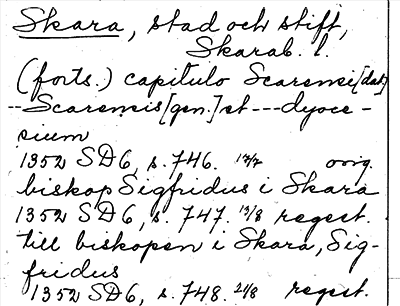 Skara, stad och stift,
Skarab. l.
(forts.) capitulo Scarensi [dat]
--Scarensis [gen.] et --- dyoce-
sium
1352 SD6, s. 746. 17/7 orig.
biskop Sigfridus i Skara
1352 SD6, s. 747. 13/8 regest.
till biskopen i Skara, Sig-
fridus
1352 SD6, s. 748. 21/8 regest.